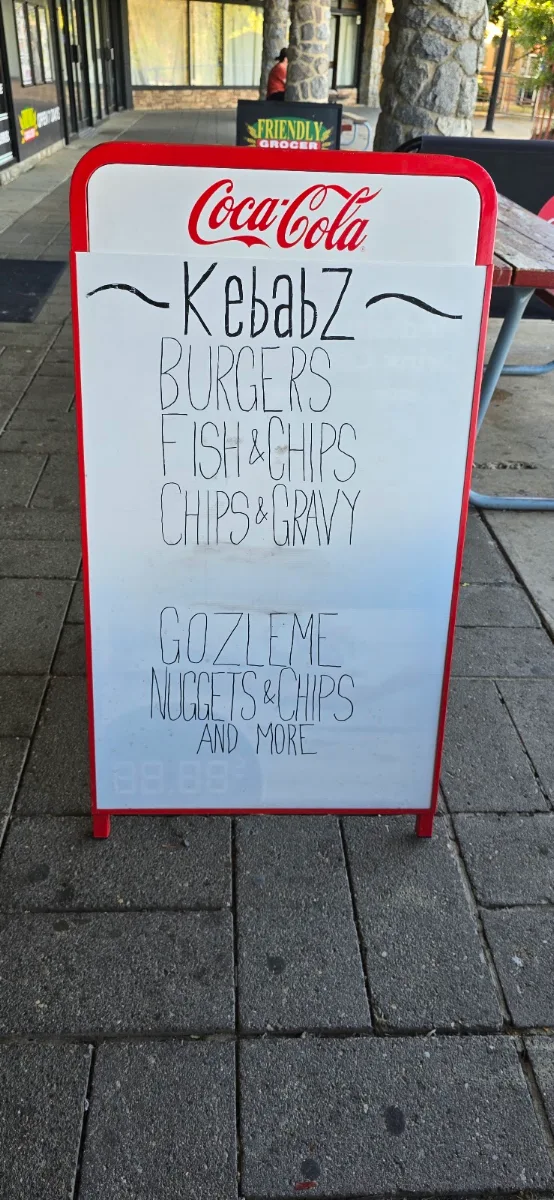 FRIENDLY
GROCER
Coca-Cola
~KebabZ~
BURGERS
FISH & CHIPS
CHIPS & GRAVY
GOZLEME
NUGGETS & CHIPS
AND MORE